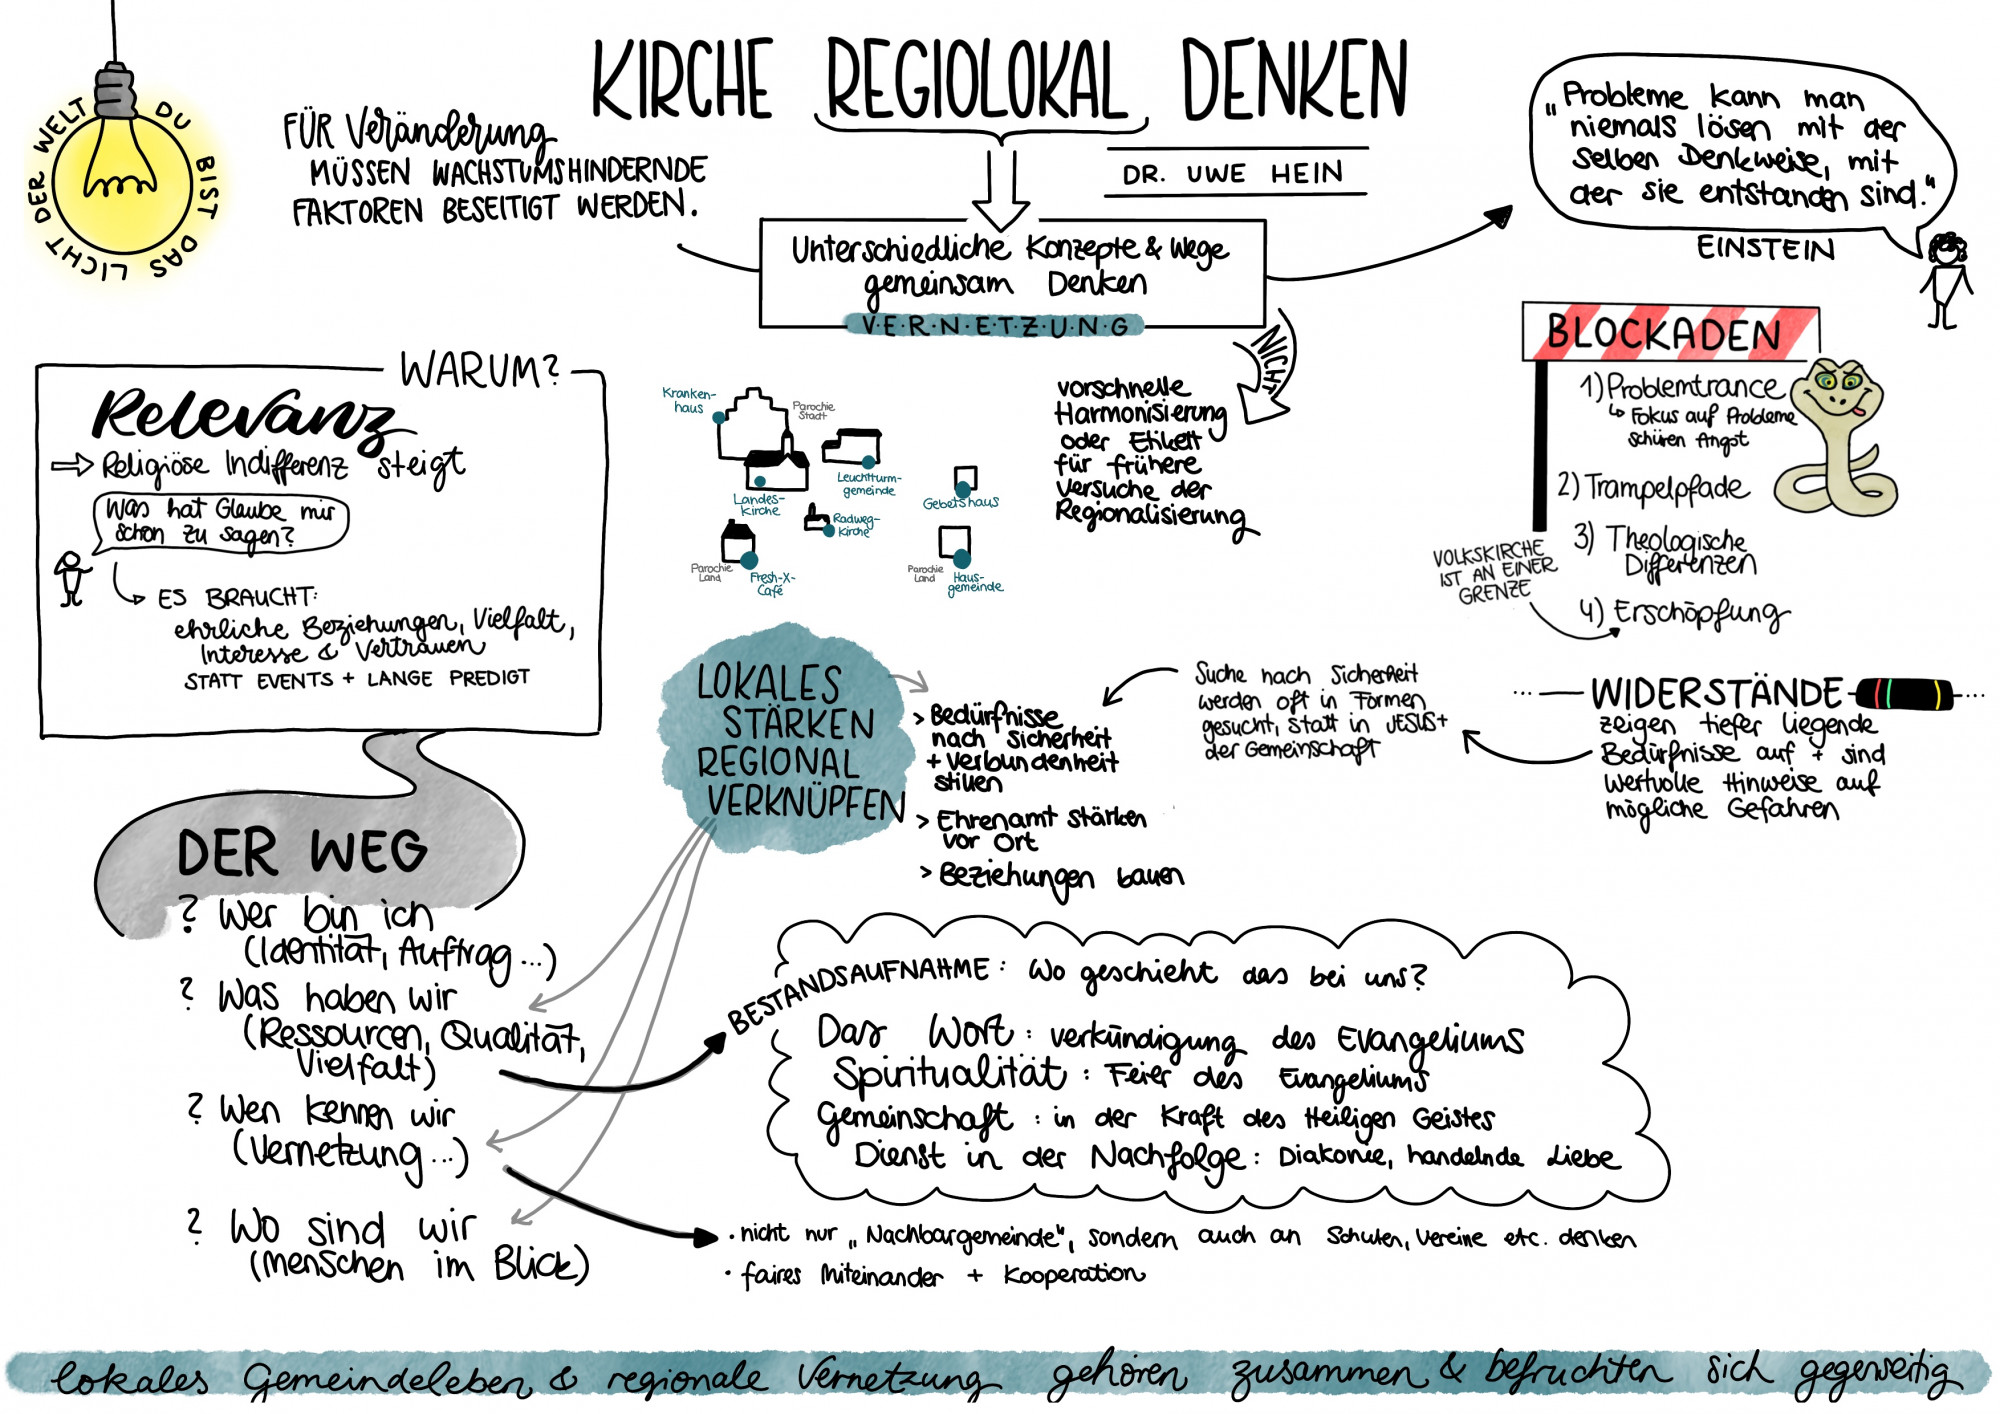 KIRCHE REGIOLOKAL DENKEN
DR. UWE HEIN
DU BIST DAS LICHT DER WELT
FÜR Veränderung
MÜSSEN WACHSTUMSHINDERNDE
FAKTOREN BESEITIGT WERDEN.
Unterschiedliche Konzepte & Wege
gemeinsam Denken
V·E·R·N·E·T·Z·U·N·G
„Probleme kann man
niemals lösen mit der
selben Denkweise, mit
der sie entstanden sind."
EINSTEIN
NICHT
vorschnelle
Harmonisierung
oder Etikett
für frühere
Versuche der
Regionalisierung
Kranken-
haus
Parochie
Stadt
Leuchtturm-
gemeinde
Landes-
kirche
Radweg-
kirche
Gebetshaus
Parochie
Land
Fresh-X-
Café
Parochie
Land
Haus-
gemeinde
BLOCKADEN
1) Problemtrance
↳ Fokus auf Probleme
schüren Angst
2) Trampelpfade
3) Theologische
Differenzen
4) Erschöpfung
VOLKSKIRCHE
IST AN EINER
GRENZE
WARUM?
Relevanz
⇒ Religiöse Indifferenz steigt
Was hat Glaube mir
schon zu sagen?
ES BRAUCHT:
ehrliche Beziehungen, Vielfalt,
Interesse & Vertrauen
STATT EVENTS + LANGE PREDIGT
LOKALES
STÄRKEN
REGIONAL
VERKNÜPFEN
> Bedürfnisse
nach Sicherheit
+ Verbundenheit
stillen
> Ehrenamt stärken
vor Ort
> Beziehungen bauen
Suche nach Sicherheit
werden oft in Formen
gesucht, statt in JESUS +
der Gemeinschaft
WIDERSTÄNDE
zeigen tiefer liegende
Bedürfnisse auf + sind
wertvolle Hinweise auf
mögliche Gefahren
DER WEG
? Wer bin ich
(Identität, Auftrag...)
? Was haben wir
(Ressourcen, Qualität,
Vielfalt)
? Wen kennen wir
(Vernetzung...)
? Wo sind wir
(Menschen im Blick)
BESTANDSAUFNAHME: Wo geschieht das bei uns?
Das Wort: Verkündigung des Evangeliums
Spiritualität: Feier des Evangeliums
Gemeinschaft: in der Kraft des Heiligen Geistes
Dienst in der Nachfolge: Diakonie, handelnde Liebe
· nicht nur „Nachbargemeinde", sondern auch an Schulen, Vereine etc. denken
· faires Miteinander + Kooperation
lokales Gemeindeleben & regionale Vernetzung gehören zusammen & befruchten sich gegenseitig